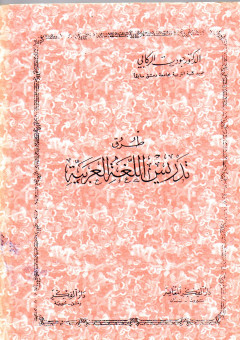 الدكتور جودت الركابي
عميد كلية التربية بجامعة دمشق سابقا
طرق
تدريس اللغة العربية
دار الفكر المعاصر
دار الفكر